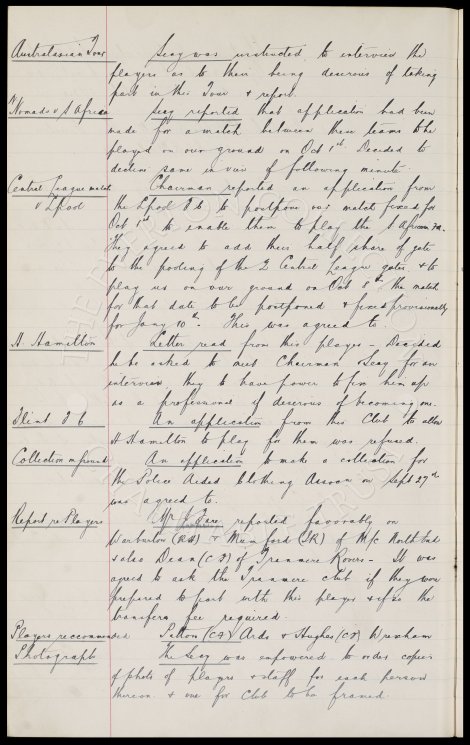 Australasian Tour Secy was instructed to interview the
players as to their being desirous of taking
part in this Tour & report.
Nomads v S Africa Secy reported that application had been
made for a match between these teams to be
played on our ground on Oct 1st. Decided to
decline same in view of following minute.
Central League match Chairman reported an application from
v L'pool the L'pool F C to postpone our match fixed for
Oct 1st to enable them to play the S African Tm.
They agreed to add their half share of gate
to the pooling of the 2 Central League gates & to
play us on our ground on Oct 8th the match
for that date to be postponed & fixed provisionally
for Jany 10th. This was agreed to.
H Hamilton Letter read from this player - Decided
he be asked to meet Chairman & Secy for an
interview they to have power to fix him up
as a professional if desirous of becoming one.
Flint F C An application from this Club to allow
H Hamilton to play for them was refused.
Collection on ground An application to make a collection for
the Police Aided Clothing Assocn on Sept 27th
was agreed to.
Report re Players Mr Fare reported favorably on
Warburton (RH) & Mumford (IR) of M/c North End
& also Dean (CF) of Tranmere Rovers - It was
agreed to ask the Tranmere club if they were
prepared to part with this player & if so the
transfer fee required.
Players reccommended Patton (CF) Ards & Hughes (CF) Wrexham
Photographs The Secy was empowered to order copies
of photo of players & staff for each person
thereon & one for Club to be framed.